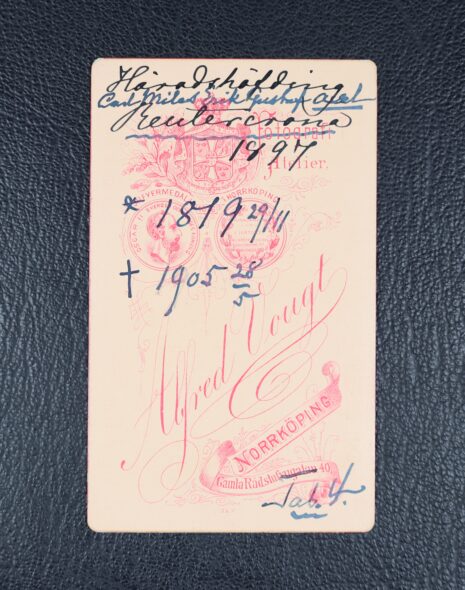 Häradshöfding
Carl Milas Erik Gustaf Axel
Reutercrona
Fotografi
1897
Atelier.
SILFVERMEDALJ
NORRKÖPING
OSCAR II
* 1819 29/11
† 1905 28/5
Alfred Vougt
NORRKÖPING.
Gamla Rådstufvugatan 40.
Tab. 4.